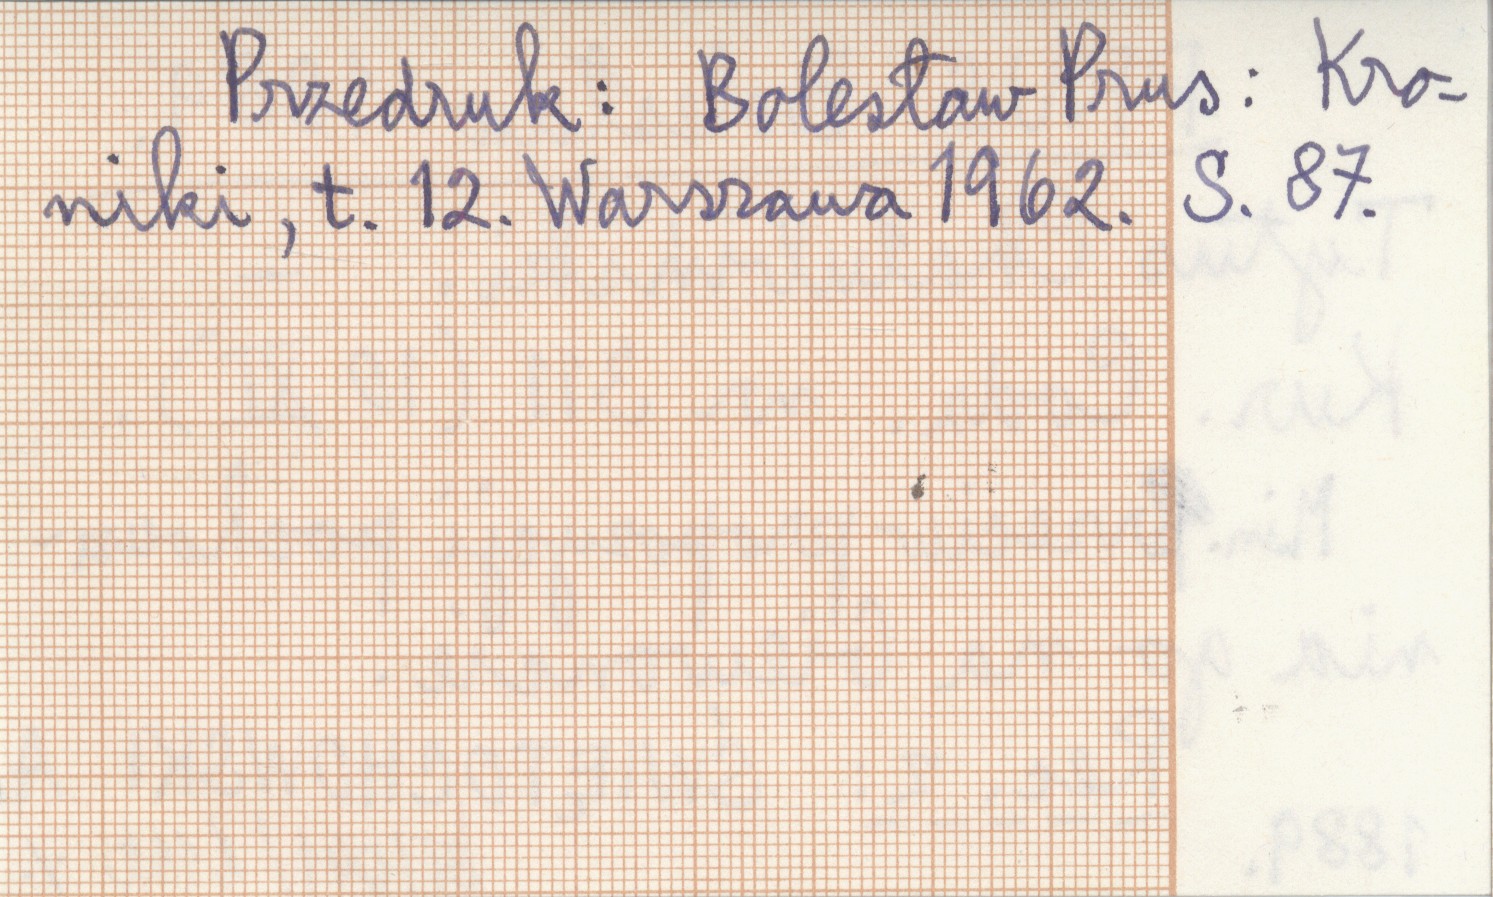 Przedruk: Bolesław Prus: Kro-
niki, t. 12. Warszawa 1962. S. 87.